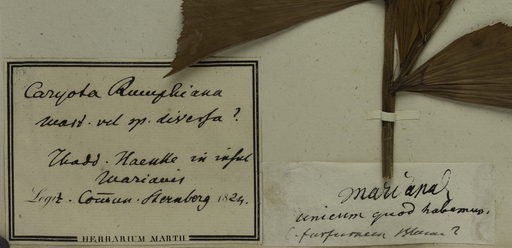 Caryota Rumphiana
Mart. vel sp. diversa?
Thadd. Haenke in insul
Marianis
Legit. Comun. Sternberg 1824.
HERBARIUM MARTII
Mariana
unicum quod habemus.
C. furfuracea Blume?